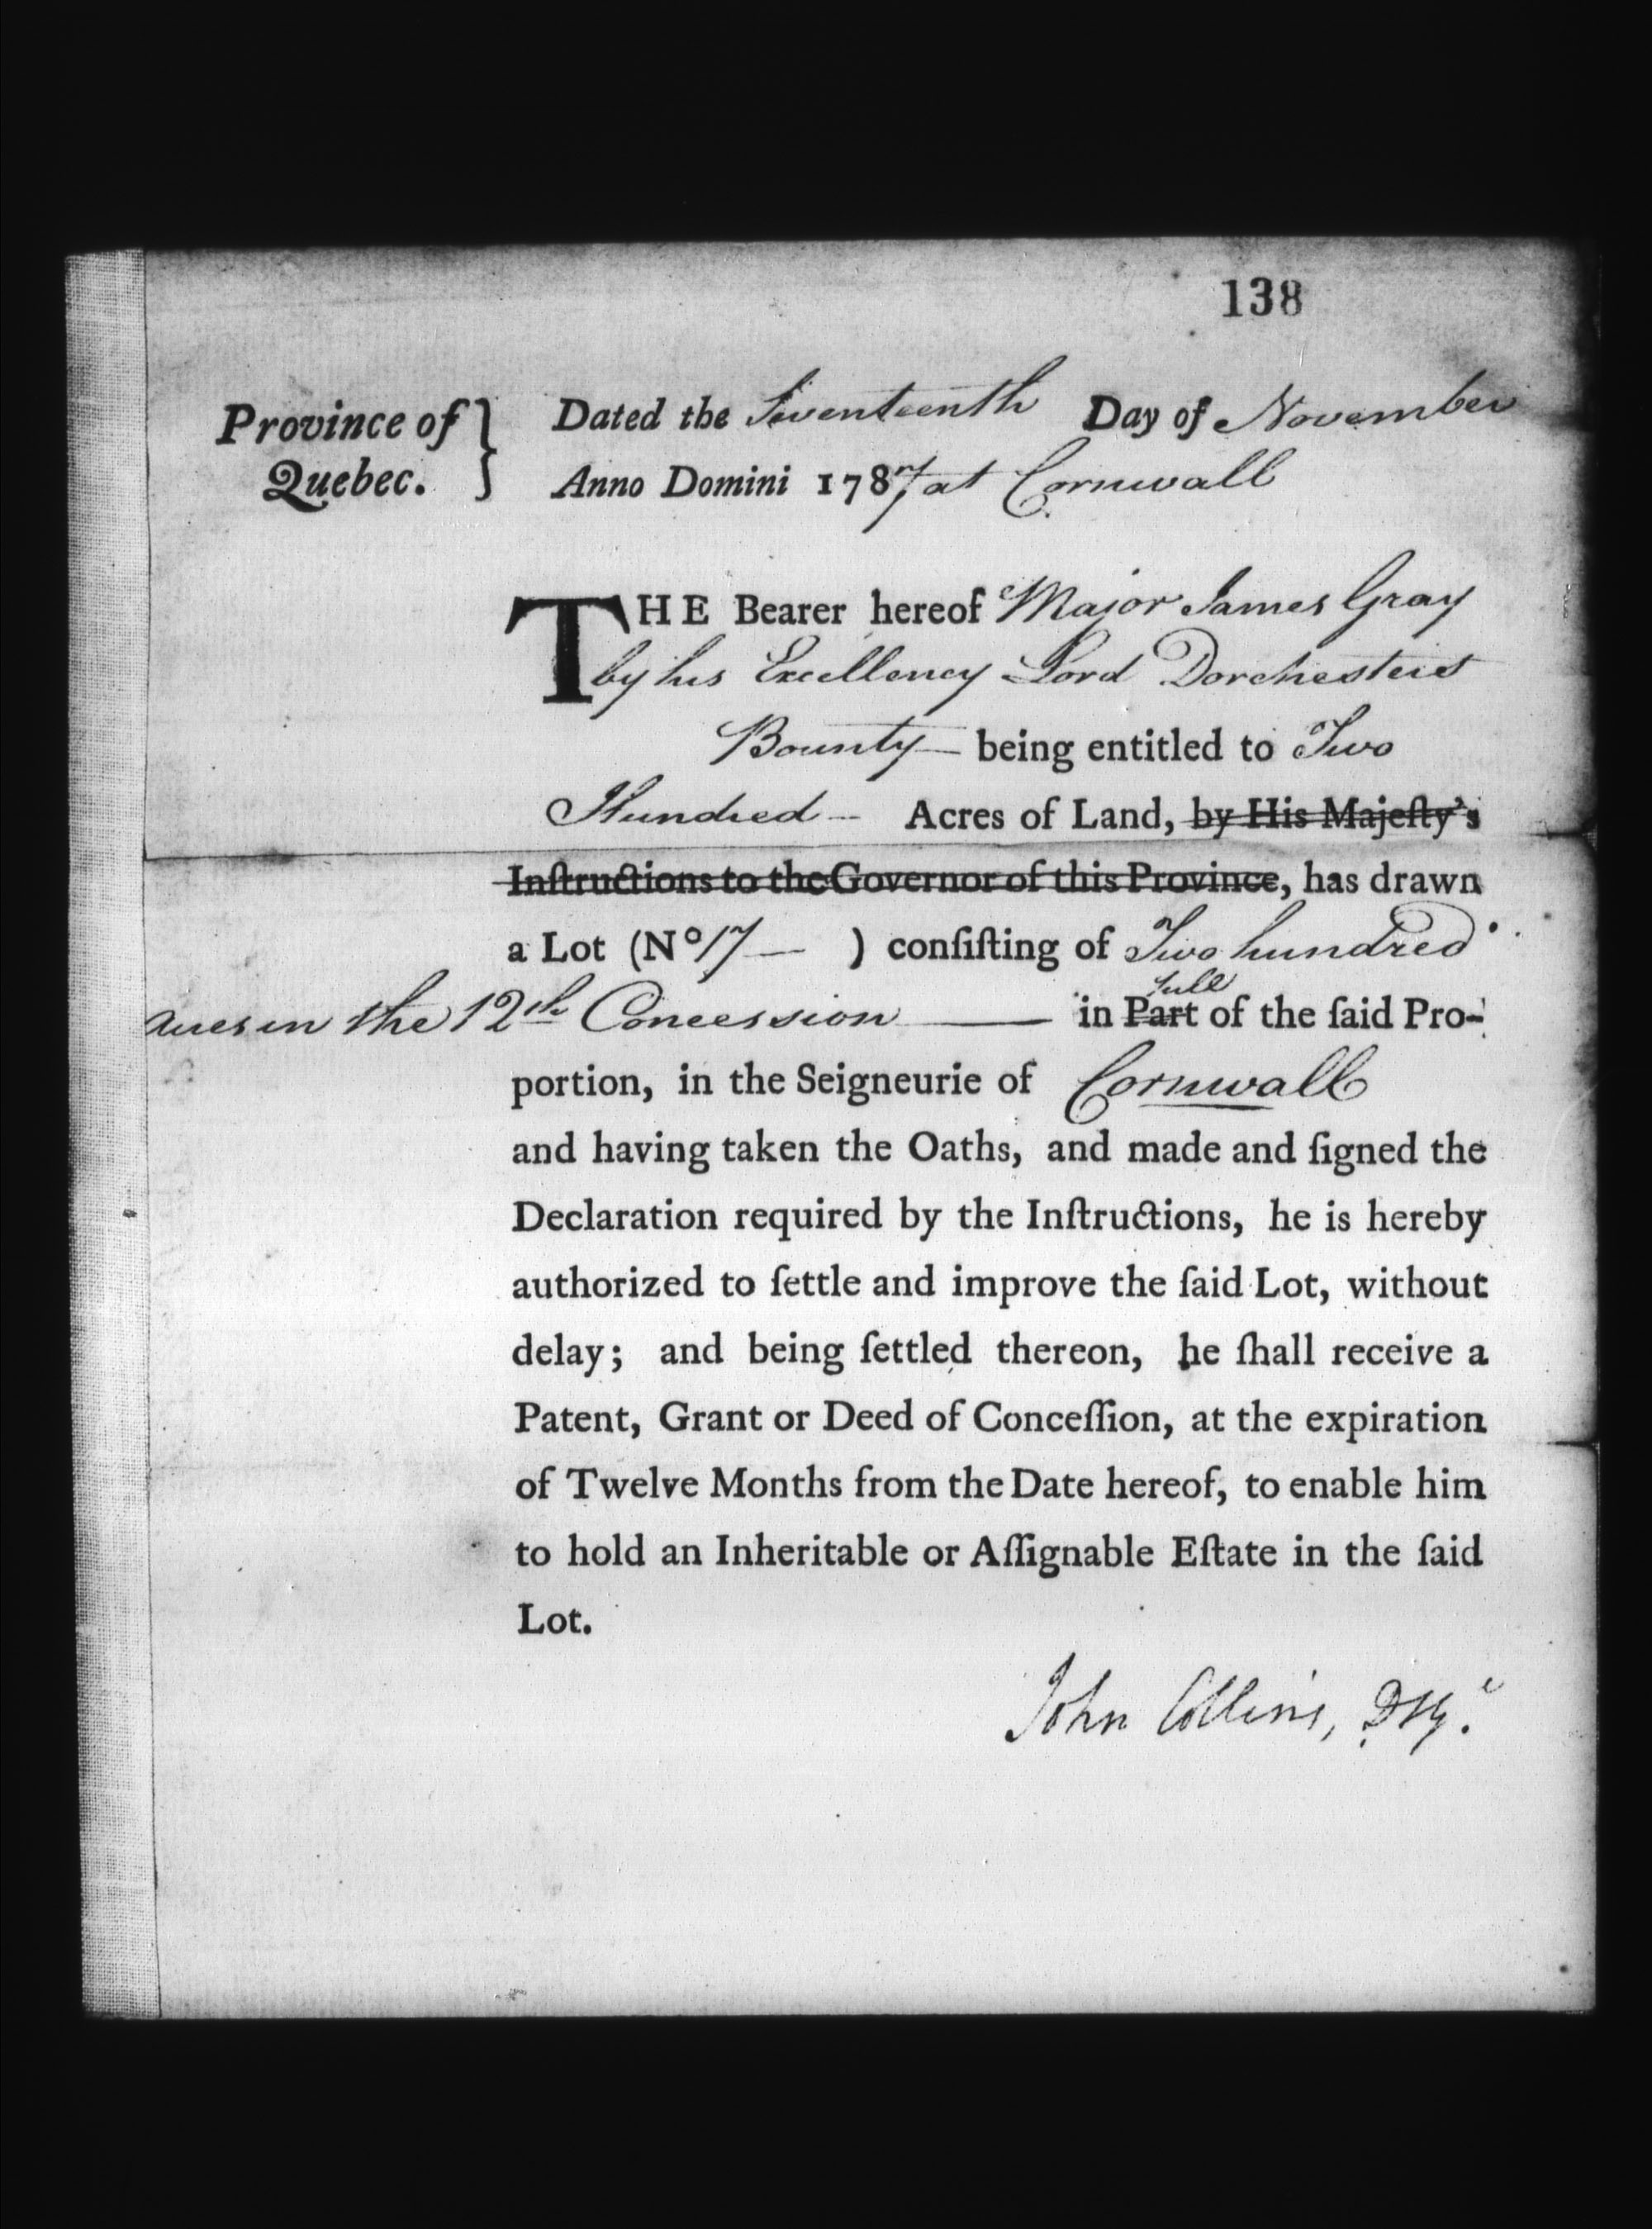 138
Province of } Dated the Seventeenth Day of November
Quebec. Anno Domini 1787 at Cornwall
THE Bearer hereof Major James Gray
by his Excellency Lord Dorchesters
Bounty — being entitled to Two
Hundred — Acres of Land, by His Majeſty's
Inſtructions to the Governor of this Province, has drawn
a Lot (No 17 — ) conſiſting of Two hundred
Full
acres in the 12th Concession — in Part of the ſaid Pro-
portion, in the Seigneurie of Cornwall
and having taken the Oaths, and made and ſigned the
Declaration required by the Inſtructions, he is hereby
authorized to ſettle and improve the ſaid Lot, without
delay; and being ſettled thereon, he ſhall receive a
Patent, Grant or Deed of Conceſſion, at the expiration
of Twelve Months from the Date hereof, to enable him
to hold an Inheritable or Aſſignable Eſtate in the ſaid
Lot.
John Collins,